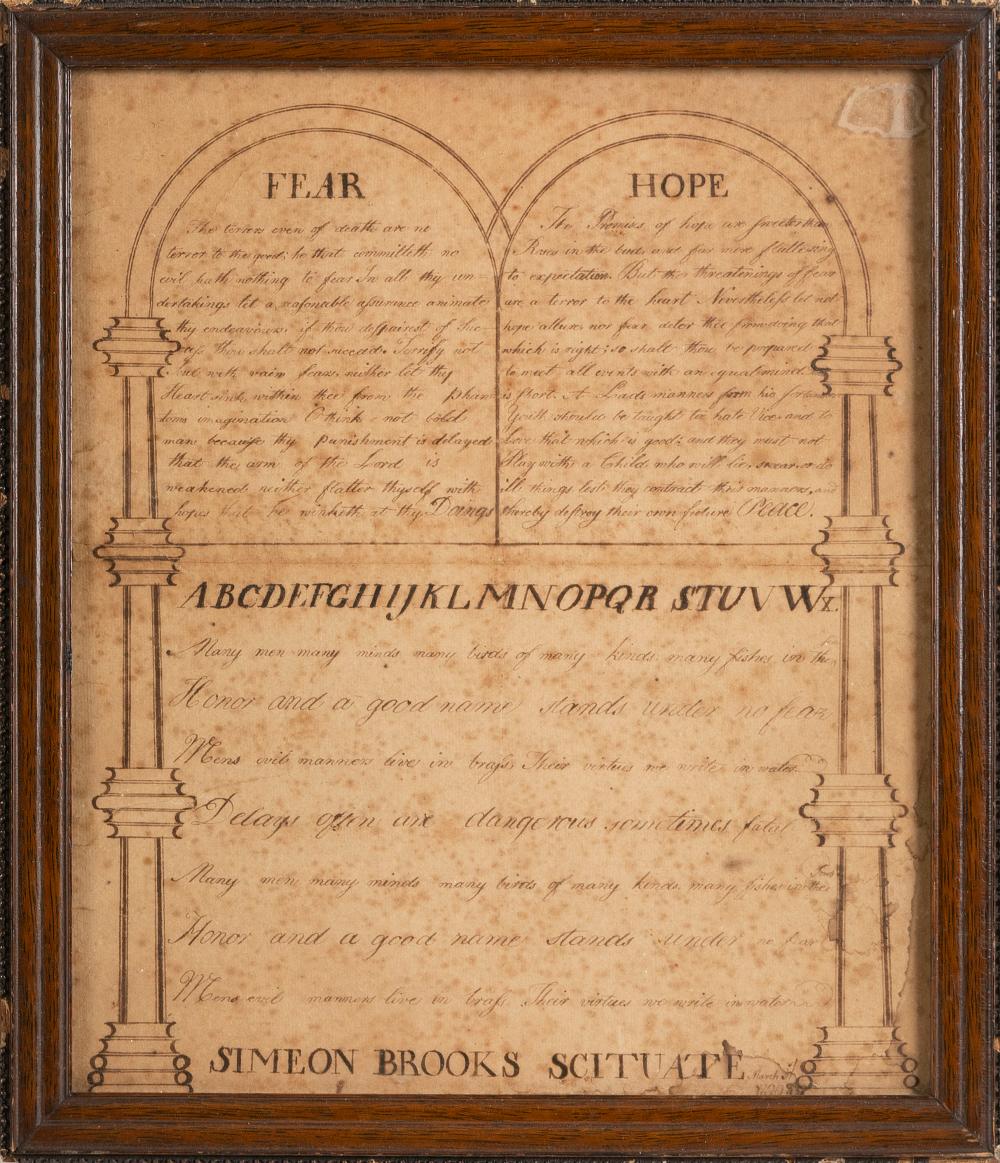 FEAR
The terrors even of death are no
terror to the good; he that committeth no
evil hath nothing to fear In all thy un-
dertakings let a reasonable assurance animate
thy endeavours, if thou despairest of Suc-
cess thou shalt not succeed. Terrify not
with vain fears, neither let thy
Heart sink within thee from the phan-
toms imagination O think not bold
man because thy punishment is delayed
that the arm of the Lord is
weakened neither flatter thyself with
hopes that he winketh at thy Doings
HOPE
The Promises of hope are sweeter than
Roses in the bud and far more flattering
to expectation. But the threatenings of fear
are a terror to the heart Nevertheless let not
hope allure, nor fear deter thee from doing that
which is right; so shalt thou be prepared
to meet all events with an equal mind.
is short. A Lads manners form his fortune
Youth should be taught to hate Vice and to
Love that which is good; and they must not
Play with a Child who will lie, swear or do
ill things lest they contract their manners, and
thereby destroy their own future Peace.
ABCDEFGHIJKLMNOPQRSTUVWX.
Many men many minds many birds of many kinds many fishes in the
Honor and a good name stands under no fear
Mens evil manners live in brass Their virtues we write in water
Delays often are dangerous sometimes fatal
Many men many minds many birds of many kinds many fishes in the
Honor and a good name stands under no fear
Mens evil manners live in brass. Their virtues we write in water
SIMEON BROOKS SCITUATE March